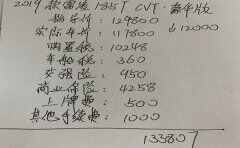 2019 款雷凌 185T CVT·豪华版
指导价：129800
实际车价：117800 ↓12000
购置税：10248
车船税：360
交强险：950
商业保险：4258
上牌费：500
其他手续费：1000
133807